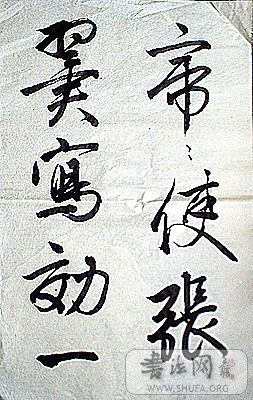 帝〻使張
翼寫効一
書法网
WWW.SHUFA.ORG